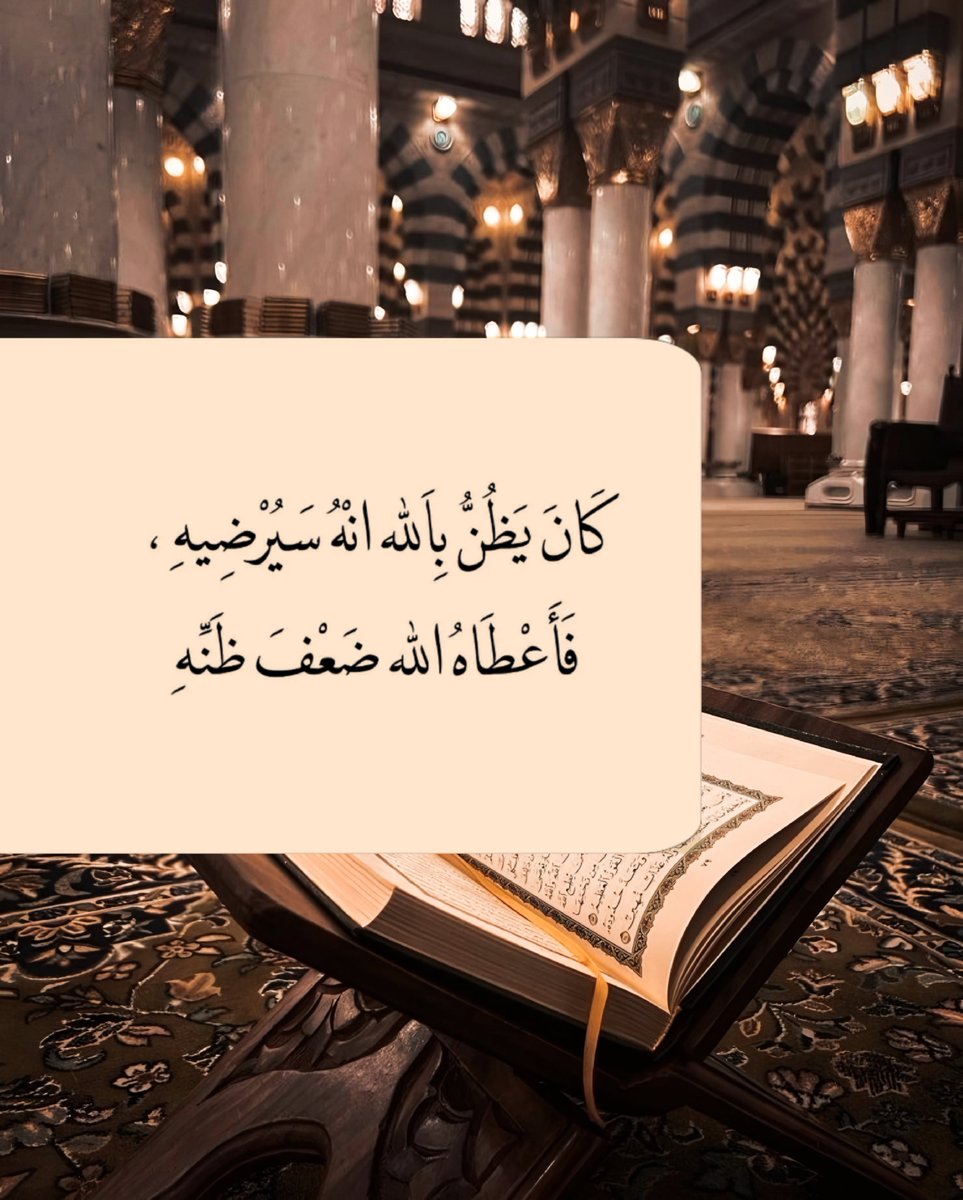 كَانَ يَظُنُّ بِاَلله انْهُ سَيُرْضِيهِ ،
فَأَعْطَاهُ الله ضَعْفَ ظَنِّهِ